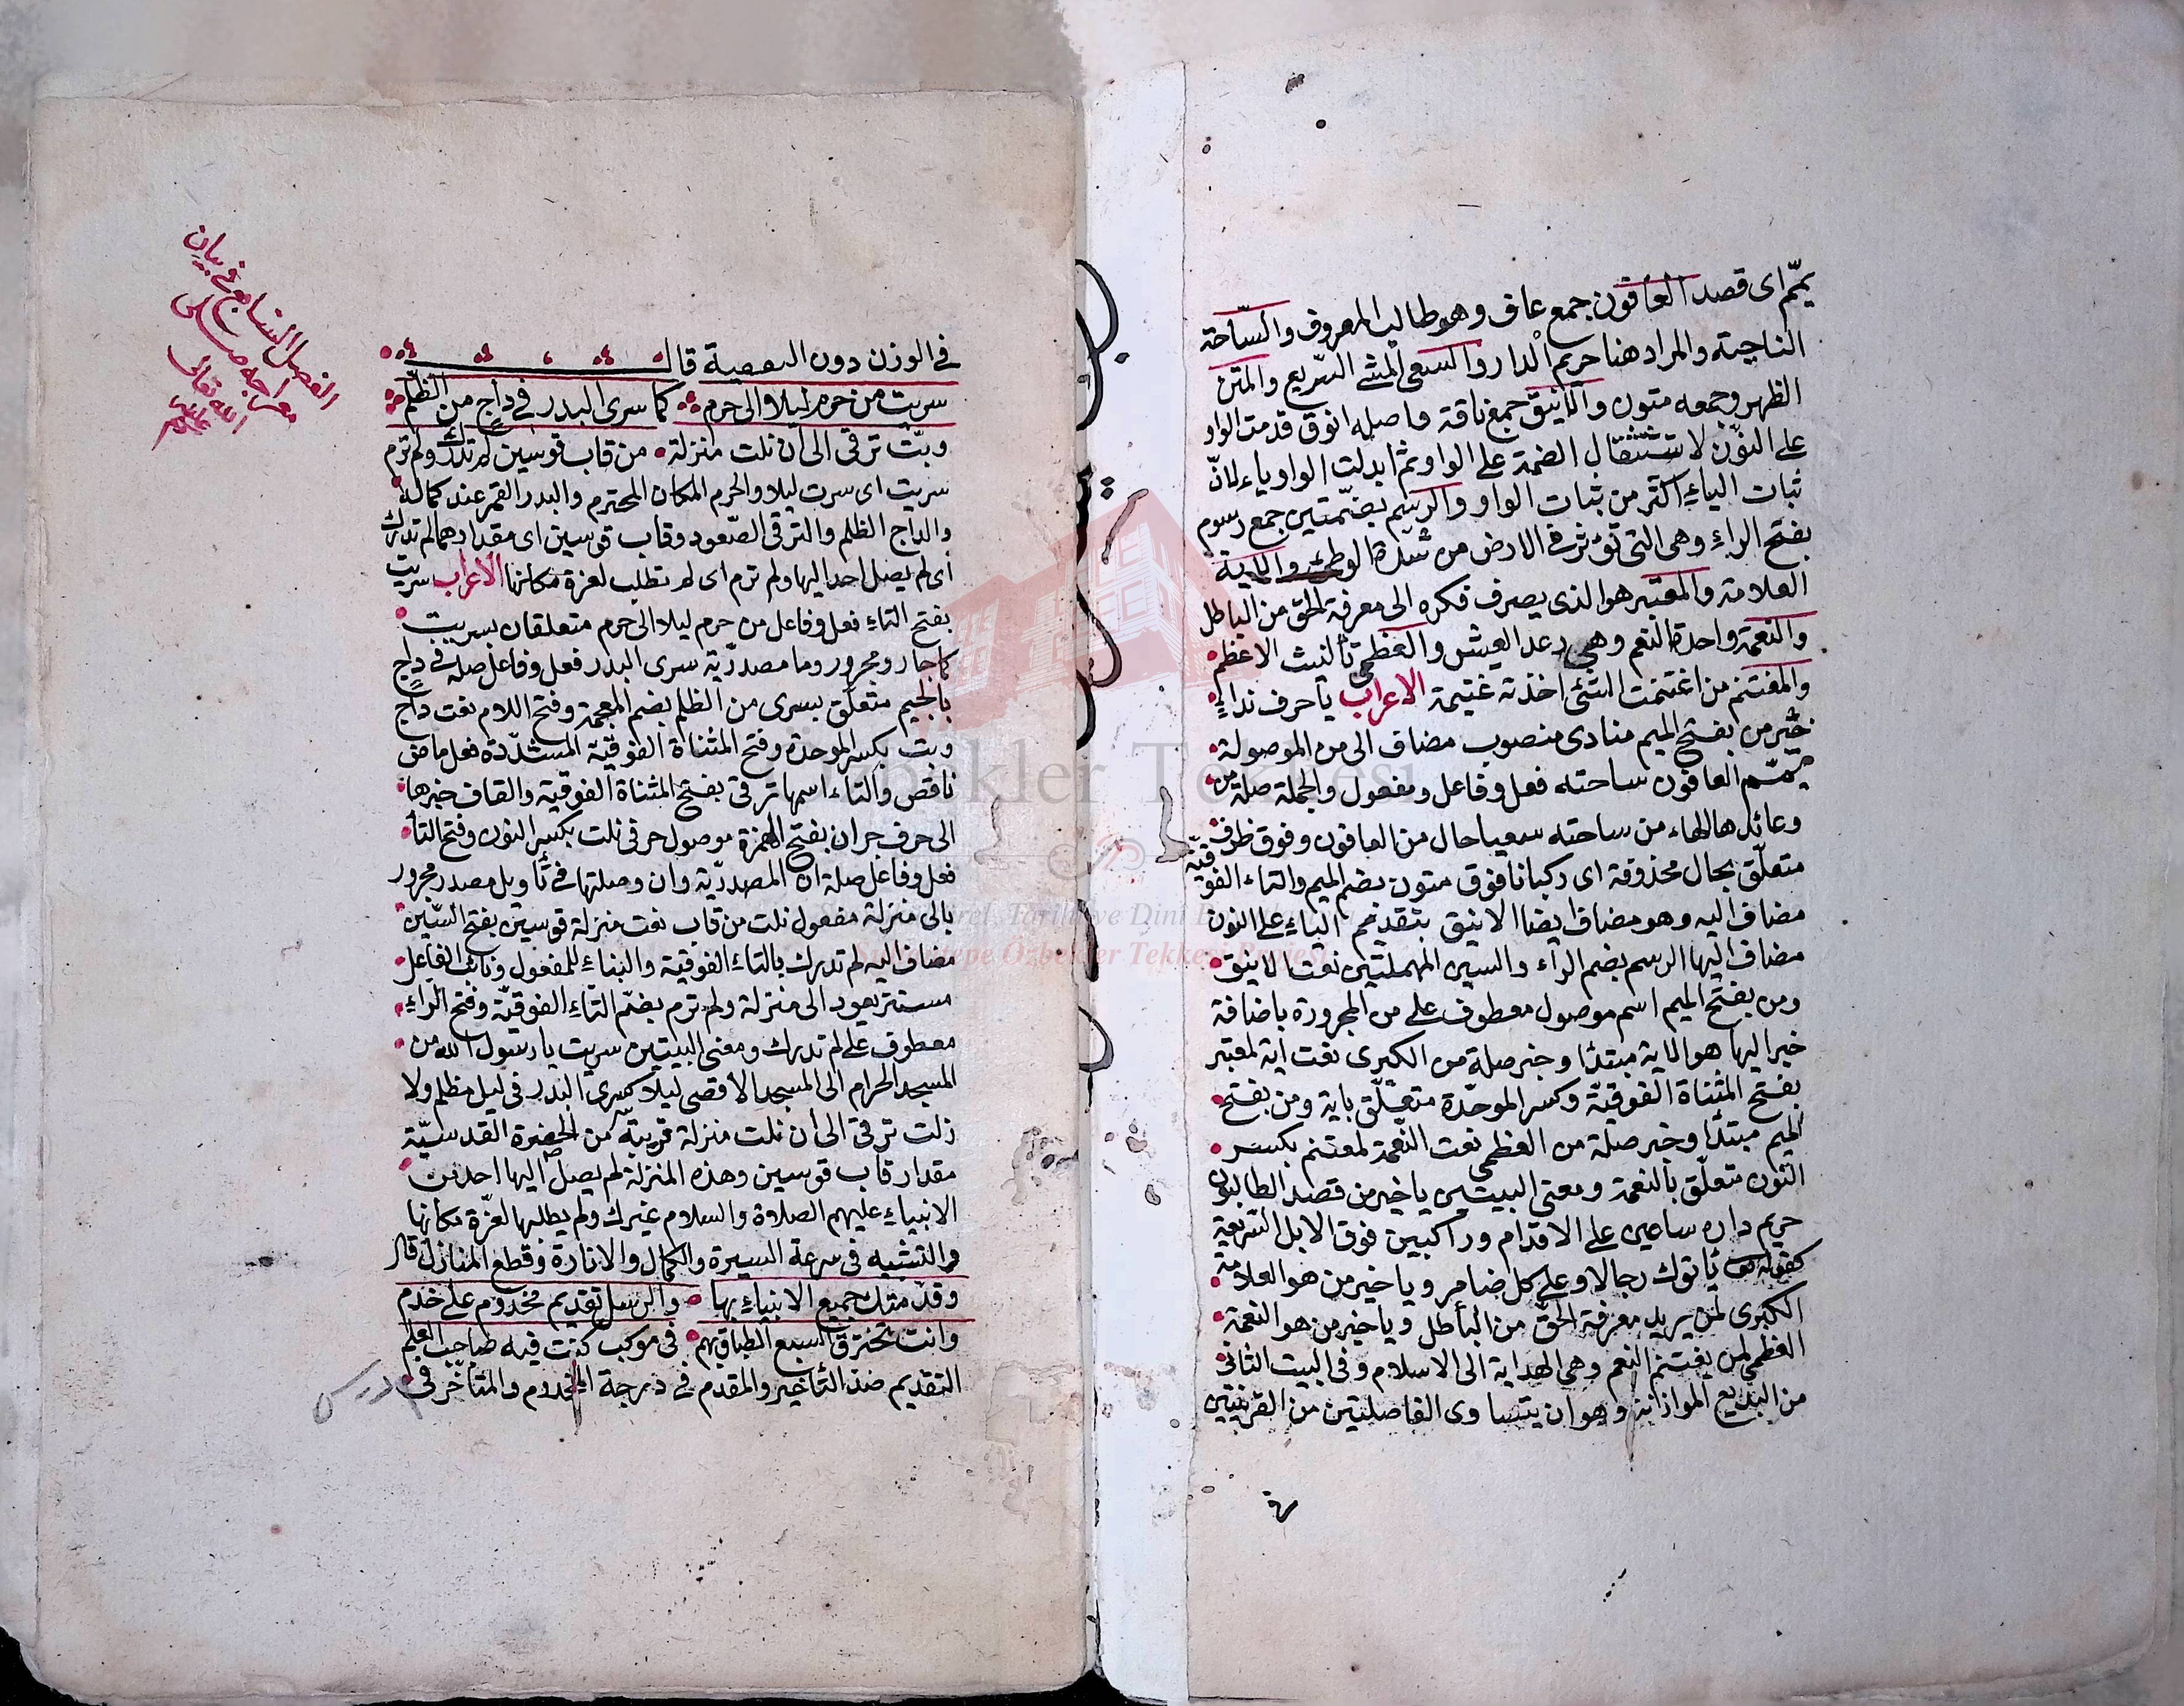 يمّم اى قصد العافون جمع عاف وهو طالب المعروف والسّاحة
الناحية والمراد هنا حريم الدار والسعى المشى السّريع والمتن
الظهر وجمعه متون والاينق جمع ناقة واصله انوق قدمت الواو
على النّون لاستثقال الضمة على الواو ثم ابدلت الواو ياء لانّ
ثبات الياء اكثر من ثبات الواو والرسم بضمّتين جمع رسوم
بفتح الراء وهى التى تؤثر فى الارض من شدة الوطئ والاية
العلامة والمعتبر هو الذى يصرف فكره الى معرفة الحق من الباطل
والنعمة واحدة النعم وهى رغد العيش والعظمى تأنيث الاعظم
والمغتنم من اغتنمت الشئ اخذته غنيمة الاعراب يا حرف نداء
خير من بفتح الميم منادى منصوب مضاف الى من الموصولة
يمّم العافون ساحته فعل وفاعل ومفعول والجملة صلة من
وعائدها الهاء من ساحته سعيا حال من العافون وفوق ظرف
متعلّق بحال محذوفة اى ركبانا فوق متون بضم الميم والتاء الفوقيّة
مضاف اليه وهو مضاف ايضا الاينق بتقديم الياء على النون
مضاف اليها الرسم بضم الراء والسين المهملتين نعت الاينق
ومن بفتح الميم اسم موصول معطوف على من المجرورة باضافة
خير اليها هو الاية مبتدأ وخبر صلة من الكبرى نعت اية لمعتبر
بفتح المثناة الفوقيّة وكسر الموحّدة متعلّق باية ومن بفتح
الميم مبتدأ وخبر صلة من العظمى نعت النّعمة لمغتنم بكسر
النون متعلّق بالنعمة ومعنى البيتين يا خير من قصد الطالبون
حريم داره ساعين على الاقدام وراكبين فوق الابل السّريعة
كقوله يأتوك رجالا وعلى كل ضامر ويا خير من هو العلامة
الكبرى لمن يريد معرفة الحقّ من الباطل ويا خير من هو النعمة
العظمى لمن يغتنم النعم وهى الهداية الى الاسلام وفى البيت الثانى
من البديع الموازنة وهو ان يتساوى الفاصلتين من القرينتين
فى الوزن دون التقفية قال
سريت من حرم ليلا الى حرم كما سرى البدر فى داج من الظلم
وبتّ ترقى الى ان نلت منزلة من قاب قوسين لم تدرك ولم ترم
سريت اى سرت ليلا والحرم المكان المحترم والبدر القمر عند كماله
والداج الظلم والترقى الصّعود وقاب قوسين اى مقدارهما لم تدرك
اى لم يصل احد اليها ولم ترم اى لم تطلب لعزة مكانها الاعراب سريت
بفتح التاء فعل وفاعل من حرم ليلا الى حرم متعلقان بسريت
كما جار ومجرور وما مصدريّة سرى البدر فعل وفاعل صلة فى داج
بالجيم متعلّق بسرى من الظلم بضم المعجمة وفتح اللام نعت داج
وبت بكسر الموحدة وفتح المثناة الفوقيّة المشدّدة فعل ماض
ناقص والتاء اسمها ترقى بفتح المثناة الفوقية والقاف خبرها
الى حرف جر ان بفتح الهمزة موصول حرفى نلت بكسر النون وفتح التاء
فعل وفاعل صلة ان المصدريّة وان وصلتها فى تأويل مصدر مجرور
بالى منزلة مفعول نلت من قاب نعت منزلة قوسين بفتح السّين
مضاف اليه لم تدرك بالتاء الفوقية والبناء للمفعول ونائب الفاعل
مستتر يعود الى منزلة ولم ترم بضمّ التّاء الفوقيّة وفتح الرّاء
معطوف على لم تدرك ومعنى البيتين سريت يا رسول الله من
المسجد الحرام الى المسجد الاقصى ليلا كسرى البدر فى ليل مظلم ولا
زلت ترقى الى ان نلت منزلة قريبة من الحضرة القدسيّة
مقدار قاب قوسين وهذه المنزلة لم يصل اليها احد من
الانبياء عليهم الصلاة والسلام غيرك ولم يطلبها لعزّة مكانها
والتشبيه فى سرعة السيرة والكمال والانارة وقطع المنازل قال
وقدّمتك جميع الانبياء بها والرسل تقديم مخدوم على خدم
وانت تخترق السبع الطباق بهم فى موكب كنت فيه صاحب العلم
التقديم ضد التأخير والمقدم فى درجة المخدوم والمتأخر فى
الفصل السابع فى بيان
معراجه
الله تعالى